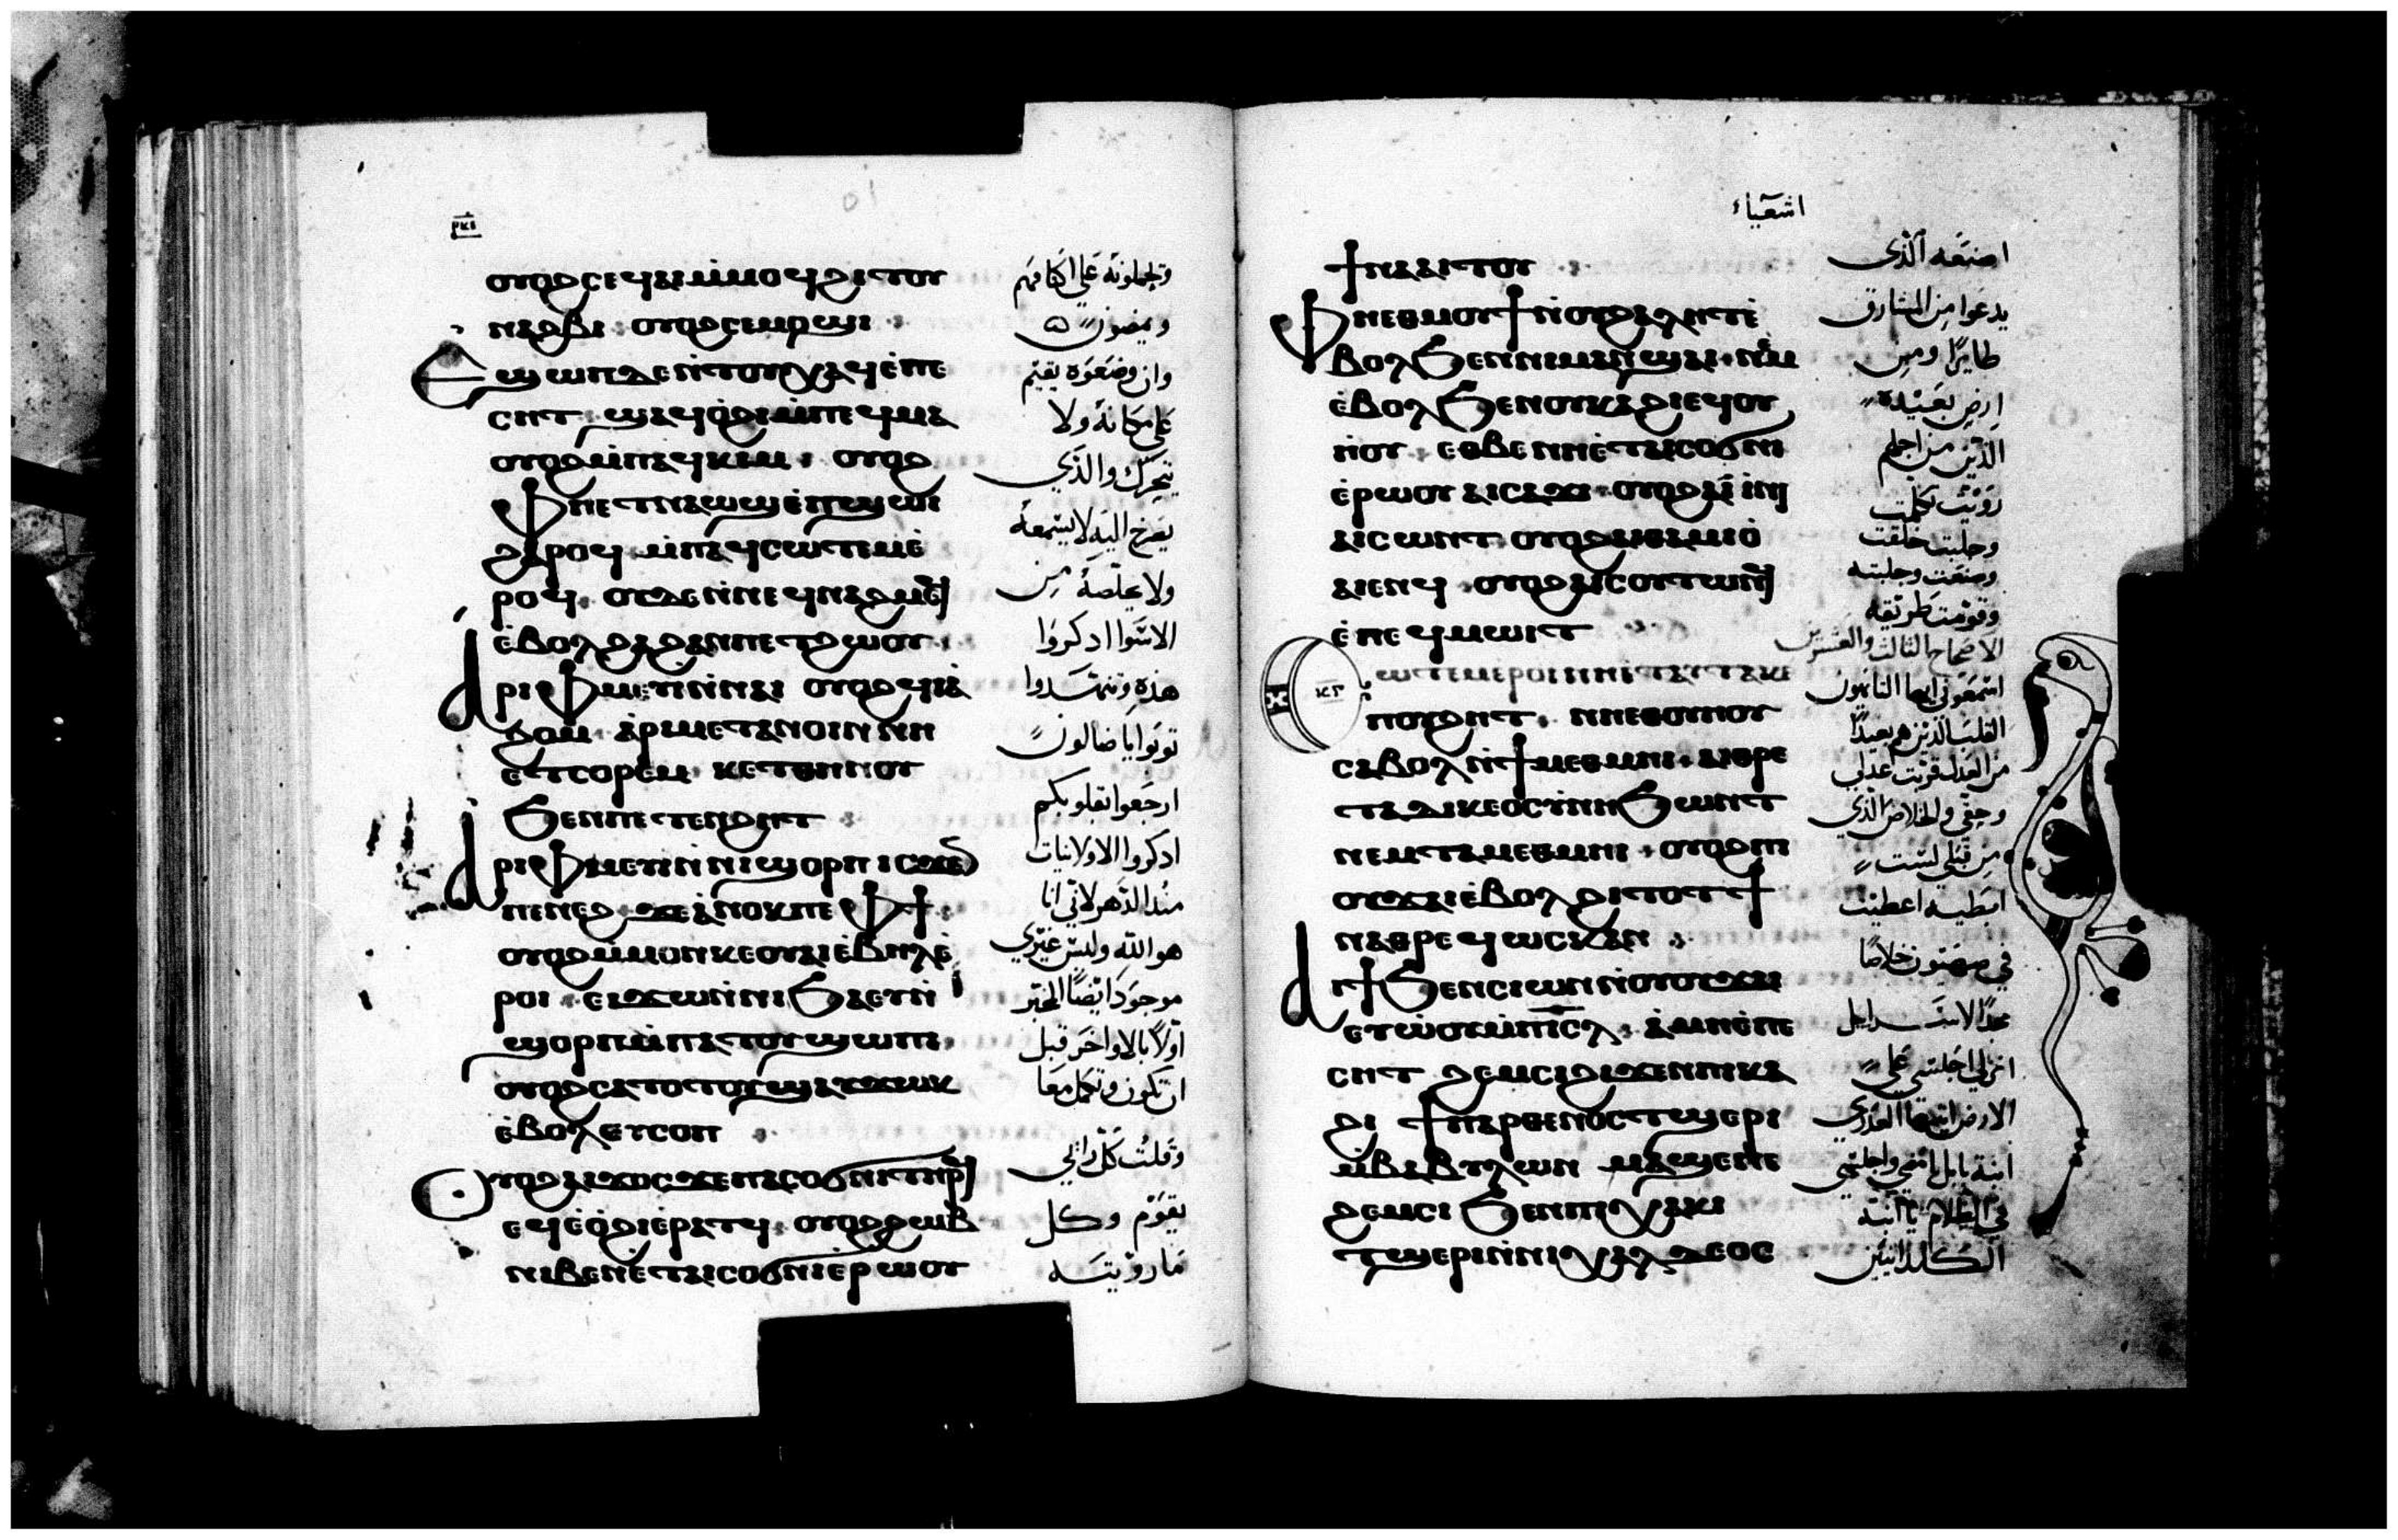 ⲣⲕⲋ
ⲟⲩⲟϩ ⲥⲉϥⲁⲓ ⲙⲙⲟϥ ϩⲓⲧⲟⲩ
ⲛⲁϩⲃⲓ ⲟⲩⲟϩ ⲥⲉⲙⲟϣⲓ
Ⲉϣⲱⲡ ⲇⲉ ⲛⲧⲟⲩⲭⲁϥ ⲉⲡⲉ
ⲥⲏⲧ ϣⲁϥⲟϩⲓ ⲙⲡⲉϥⲙⲁ
ⲟⲩⲟϩ ⲙⲡⲁϥⲕⲓⲙ ⲟⲩⲟϩ
Ⲫⲏ ⲉⲧⲛⲁⲱϣ ⲉⲡϣⲱⲓ
ϩⲁⲣⲟϥ ⲙⲡⲁϥⲥⲱⲧⲉⲙ ⲉ
ⲣⲟϥ ⲟⲩⲇⲉ ⲛⲛⲉϥⲛⲁϩⲙⲉϥ
ⲉⲃⲟⲗ ϩⲁ ϩⲁⲛⲡⲉⲧϩⲱⲟⲩ
Ⲁⲣⲓⲫⲙⲉⲩⲓ ⲛⲛⲁⲓ ⲟⲩⲟϩ ϥⲓⲁ
ϩⲟⲙ ⲁⲣⲓⲙⲉⲧⲁⲛⲟⲓⲛ ⲛⲏ
ⲉⲧⲥⲟⲣⲉⲙ ⲕⲉⲧ ⲑⲏⲛⲟⲩ
ϧⲉⲛ ⲡⲉⲧⲉⲛϩⲏⲧ
Ⲁⲣⲓⲫⲙⲉⲩⲓ ⲛⲛⲓϣⲟⲣⲡ ⲓⲥϫⲉⲛ
ⲡⲉⲛⲉϩ ϫⲉ ⲁⲛⲟⲕ ⲡⲉ ⲫϯ
ⲟⲩⲟϩ ⲙⲙⲟⲛ ⲕⲉⲟⲩⲁⲓ ⲉⲃⲏⲗ ⲉ
ⲣⲟⲓ ⲉⲓϫⲱ ⲛⲛⲓϧⲁⲉⲩ ⲛ
ϣⲟⲣⲡ ⲙⲡⲁⲧⲟⲩϣⲱⲡⲓ
ⲟⲩⲟϩ ⲥⲁⲧⲟⲧⲟⲩ ϣⲁⲩϫⲱⲕ
ⲉⲃⲟⲗ ⲉⲩⲥⲟⲡ
Ⲟⲩⲟϩ ⲁⲓϫⲟⲥ ϫⲉ ⲡⲁⲥⲟϭⲛⲓ ⲧⲏⲣϥ
ⲉϥⲉⲟϩⲓ ⲉⲣⲁⲧϥ ⲟⲩⲟϩ ϩⲱⲃ
ⲛⲓⲃⲉⲛ ⲉⲧⲁⲓⲥⲟϭⲛⲓ ⲉⲣⲱⲟⲩ
ويحملونه علي اكتافهم
ويمضون
وان وضعوه يقيم
علي مكانه ولا
يتحرك والذي
يصرخ اليه لا يسمعه
ولا يخلصه من
الاسوا ادكروا
هذه وتنهدوا
توبوا يا ضالون
ارجعوا بقلوبكم
ادكروا الاولانيات
منذ الدهر لاني انا
هو الله وليس غيري
موجود ايضا المخبر
اولا بالاواخر قبل
ان تكون وتكمل معا
وقلت كل رايي
يقوم وكل
ما رويته
اشعياء
ϯⲛⲁⲁⲓⲧⲟⲩ
Ⲫⲏ ⲉⲑⲙⲟⲩϯ ⲛⲟⲩϩⲁⲗⲏⲧ ⲉ
ⲃⲟⲗ ϧⲉⲛ ⲛⲓⲙⲁⲛϣⲁⲓ ⲛⲉⲙ
ⲉⲃⲟⲗ ϧⲉⲛ ⲟⲩⲕⲁϩⲓ ⲉϥⲟⲩ
ⲏⲟⲩ ⲉⲑⲃⲉ ⲛⲏ ⲉⲧⲁⲓⲥⲟϭⲛⲓ
ⲉⲣⲱⲟⲩ ⲁⲓⲥⲁϫⲓ ⲟⲩⲟϩ ⲁⲓⲓⲛⲓ
ⲁⲓⲥⲱⲛⲧ ⲟⲩⲟϩ ⲁⲓⲑⲁⲙⲓⲟ
ⲁⲓⲉⲛϥ ⲟⲩⲟϩ ⲁⲓⲥⲟⲩⲧⲱⲛϥ
ⲉⲡⲉϥⲙⲱⲓⲧ
ⲕⲅ
Ⲥⲱⲧⲉⲙ ⲉⲣⲟⲓ ⲛⲏ ⲉⲧⲁⲩⲧⲁⲕⲉ
ⲡⲟⲩϩⲏⲧ ⲛⲏ ⲉⲑⲟⲩⲏⲟⲩ
ⲥⲁⲃⲟⲗ ⲛϯⲙⲉⲑⲙⲏⲓ ⲁⲓⲑⲣⲉ
ⲧⲁⲇⲓⲕⲉⲟⲥⲩⲛⲏ ϧⲱⲛⲧ
ⲛⲉⲙ ⲧⲁⲙⲉⲑⲙⲏⲓ ⲟⲩⲟϩ ⲡⲓ
ⲟⲩϫⲁⲓ ⲉⲃⲟⲗ ϩⲓⲧⲟⲧ ϯ
ⲛⲁⲑⲣⲉϥⲱⲥⲕ ⲁⲛ
Ⲁⲓϯ ϧⲉⲛ ⲥⲓⲱⲛ ⲛⲟⲩⲟⲩϫⲁⲓ
ⲉⲩⲱⲟⲩ ⲙⲡⲓⲥⲗ ⲁⲙⲏ ⲉⲡⲉ
ⲥⲏⲧ ϩⲉⲙⲥⲓ ϩⲓϫⲉⲛ ⲡⲓⲕⲁ
ϩⲓ ϯⲡⲁⲣⲑⲉⲛⲟⲥ ⲧϣⲉⲣⲓ
ⲙⲃⲁⲃⲩⲗⲱⲛ ⲙⲁϣⲉ ⲛⲉ
ϩⲉⲙⲥⲓ ϧⲉⲛ ⲡⲓⲭⲁⲕⲓ
ⲧϣⲉⲣⲓ ⲛⲛⲓⲭⲁⲗⲇⲉⲟⲥ
اصنعه الذي
يدعوا من المشارق
طايرا ومن
ارض بعيدة
الذين من اجلهم
رويت تكلمت
وجلبت خلقت
وصنعت وجلبته
وقومت طريقه
الاصحاح الثالث والعشرين
اسمعوني ايها التايهون
القلب الذين هم بعيدا
من العدل قربت عدلي
وحقي والخلاص الذي
من قبلي لست
ابطيه اعطيت
في صهيون خلاصا
مجدا لاسرايل
انزلي اجلسي علي
الارض ايتها العذري
ابنة بابل امضي واجلسي
في الظلام يا ابنة
الكلدانيين